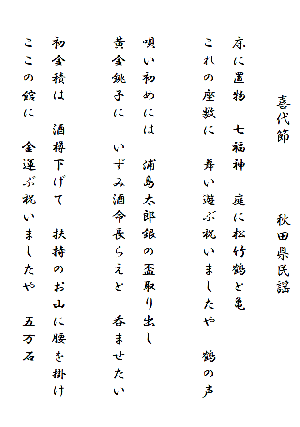 喜代節　秋田県民謡
床に置物　七福神　庭に松竹鶴と亀
これの座敷に　舞い遊ぶ祝いましたや　鶴の声
唄い初めには　浦島太郎銀の盃取り出し
黄金銚子に　いずみ酒命長らえと　呑ませたい
初金積は　酒樽下げて　扶持のお山に腰を掛け
ここの館に　金運ぶ祝いましたや　五万石